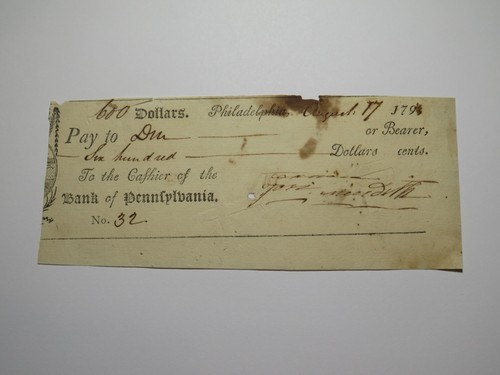 600 Dollars. Philadelphia, August 17 179
Pay to Due or Bearer,
Six hundred Dollars cents.
To the Cashier of the
Bank of Pennsylvania.
No. 32